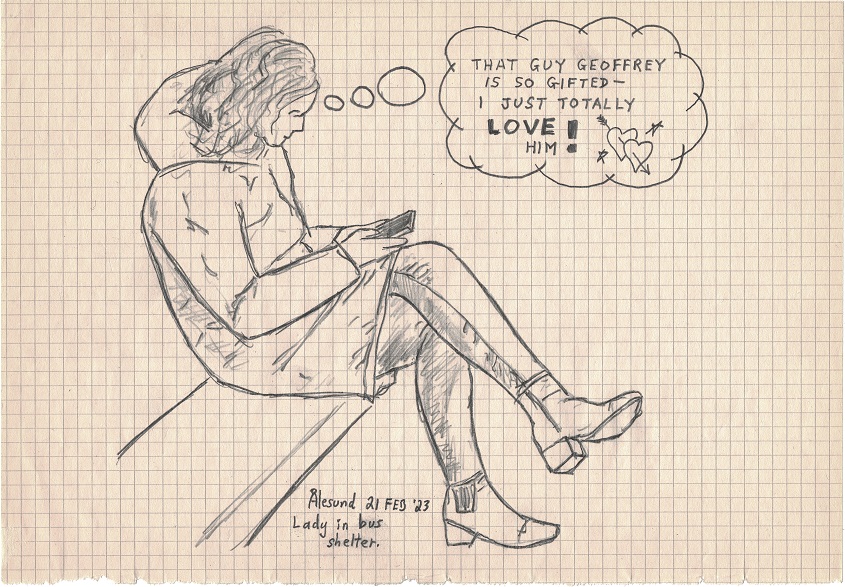 THAT GUY GEOFFREY
IS SO GIFTED—
I JUST TOTALLY
LOVE!
HIM
Ålesund 21 FEB '23
Lady in bus
shelter.